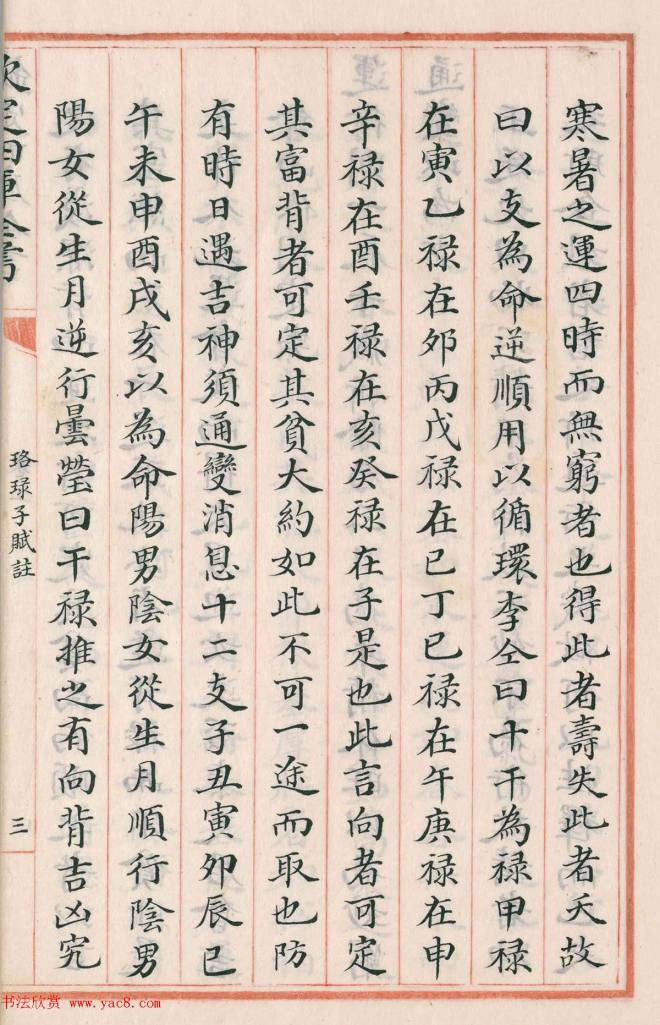 寒暑之運四時而無窮者也得此者壽失此者夭故
曰以支為命逆順用以循環李仝曰十干為禄甲禄
在寅乙禄在夘丙戊禄在巳丁巳禄在午庚禄在申
辛禄在酉壬禄在亥癸禄在子是也此言向者可定
其富背者可定其貧大約如此不可一途而取也防
有時日遇吉神須通變消息十二支子丑寅夘辰巳
午未申酉戌亥以為命陽男陰女從生月順行陰男
陽女從生月逆行曇瑩曰干禄推之有向背吉凶究
欽定四庫全書
珞琭子賦註
三
书法欣赏 www.yac8.com